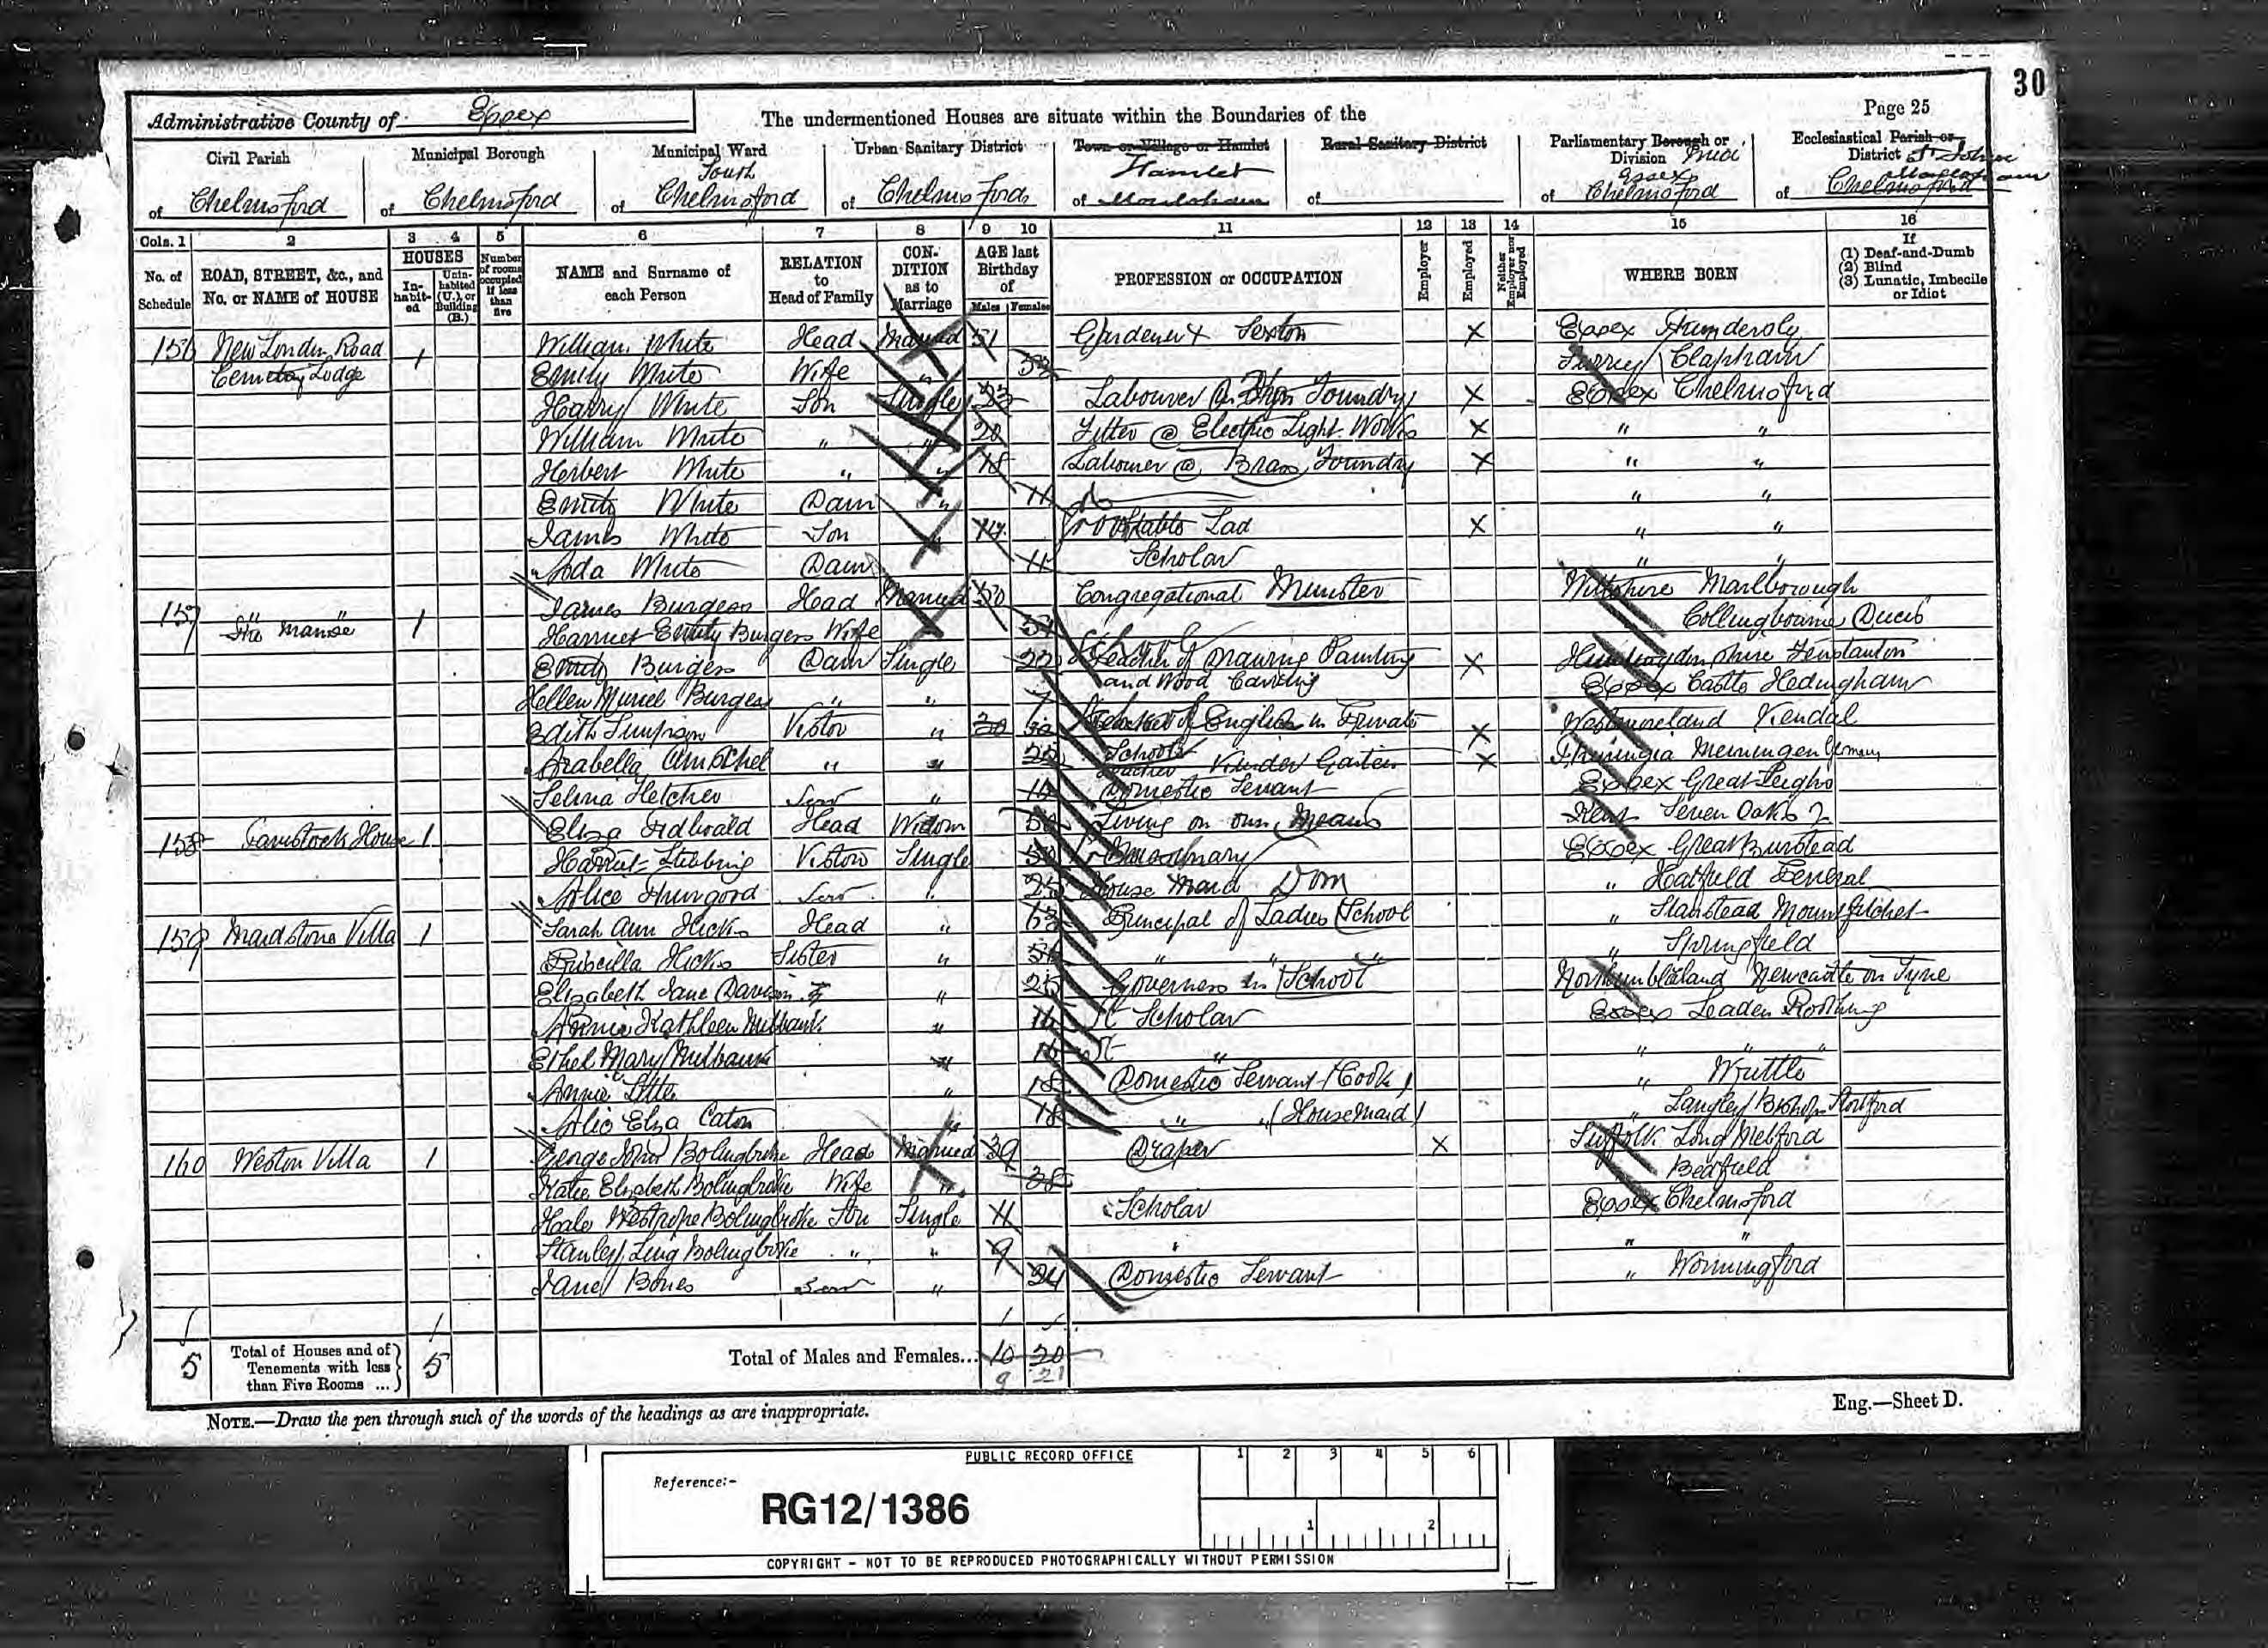 30
Page 25
Administrative County of Essex
The undermentioned Houses are situate within the Boundaries of the
Civil Parish of Chelmsford
Municipal Borough of Chelmsford
Municipal Ward of South Chelmsford
Urban Sanitary District of Chelmsford
Town or Village or Hamlet Hamlet of Moulsham
Rural Sanitary District of
Parliamentary Borough or Division Mid Essex of Chelmsford
Ecclesiastical Parish or District St Johns Moulsham of Chelmsford
Cols. 1 2 3 4 5 6 7 8 9 10 11 12 13 14 15 16
No. of Schedule
ROAD, STREET, &c., and No. or NAME of HOUSE
HOUSES
Inhabited
Uninhabited (U.), or Building (B.)
Number of rooms occupied if less than five
NAME and Surname of each Person
RELATION to Head of Family
CONDITION as to Marriage
AGE last Birthday of
Males Females
PROFESSION or OCCUPATION
Employer
Employed
Neither Employer nor Employed
WHERE BORN
If (1) Deaf-and-Dumb (2) Blind (3) Lunatic, Imbecile or Idiot
156 New London Road 1 William White Head Married 51 Gardener & Sexton X Essex
Cemetery Lodge Emily White Wife " Surrey Clapham
Harry White Son Single Labourer @ Foundry X Essex Chelmsford
William White " " 20 Fitter @ Electric Light Works X " "
Herbert White " " 18 Labourer @ Brass Foundry X " "
White Daur " " "
James White Son " Stable Lad X " "
Ada White Daur 11 Scholar " "
157 " " 1 James Burgess Head Married 50 Congregational Minister Wiltshire Marlborough
The Manse Harriet Emily Burgess Wife Collingbourne Ducis
Burgess Daur Single Teacher of Drawing Painting X Huntingdonshire Fenstanton
and Wood Carving
Hellen Muriel Burgess " " 7 Essex Castle Hedingham
Edith Simpson Visitor " 30 Teacher of English in Private X Westmoreland Kendal
Schools
Arabella " " Teacher Kinder Garten X Meiningen Germany
Selina Fletcher Serv " Domestic Servant Essex Great Leighs
158 Tavistock House 1 Eliza Head Widow Living on own Means Kent Seven Oaks
Harriet Stebbing Visitor Single Essex Great Burstead
Alice Serv " 25 House Maid Dom " Hatfield Peverel
159 Maidstone Villa 1 Sarah Ann Hicks Head " 63 Principal of Ladies School " Stanstead Mountfitchet
Priscilla Hicks Sister " " " " " Springfield
Elizabeth Jane Davison " 25 Governess in School Northumberland Newcastle on Tyne
Annie Kathleen Milbank " Scholar Essex Leaden Roothing
Ethel Mary Milbank " " " " "
Annie " 18 Domestic Servant (Cook) " Writtle
Eliza Caton " 18 " " (Housemaid) " Langley Bishops Stortford
160 Weston Villa 1 George John Bolingbroke Head Married 39 Draper X Suffolk Long Melford
Katie Elizabeth Bolingbroke Wife " 38 Bedfield
Hale Westrope Bolingbroke Son Single 11 Scholar Essex Chelmsford
Stanley Ling Bolingbroke " " 9 " " "
Jane Bones Serv " 24 Domestic Servant " Wormingford
5 Total of Houses and of Tenements with less than Five Rooms ... 5
Total of Males and Females... 10 20
9 21
NOTE.—Draw the pen through such of the words of the headings as are inappropriate.
Eng.—Sheet D.
PUBLIC RECORD OFFICE
Reference:-
RG12/1386
1 2 3 4 5 6
1 2
COPYRIGHT - NOT TO BE REPRODUCED PHOTOGRAPHICALLY WITHOUT PERMISSION